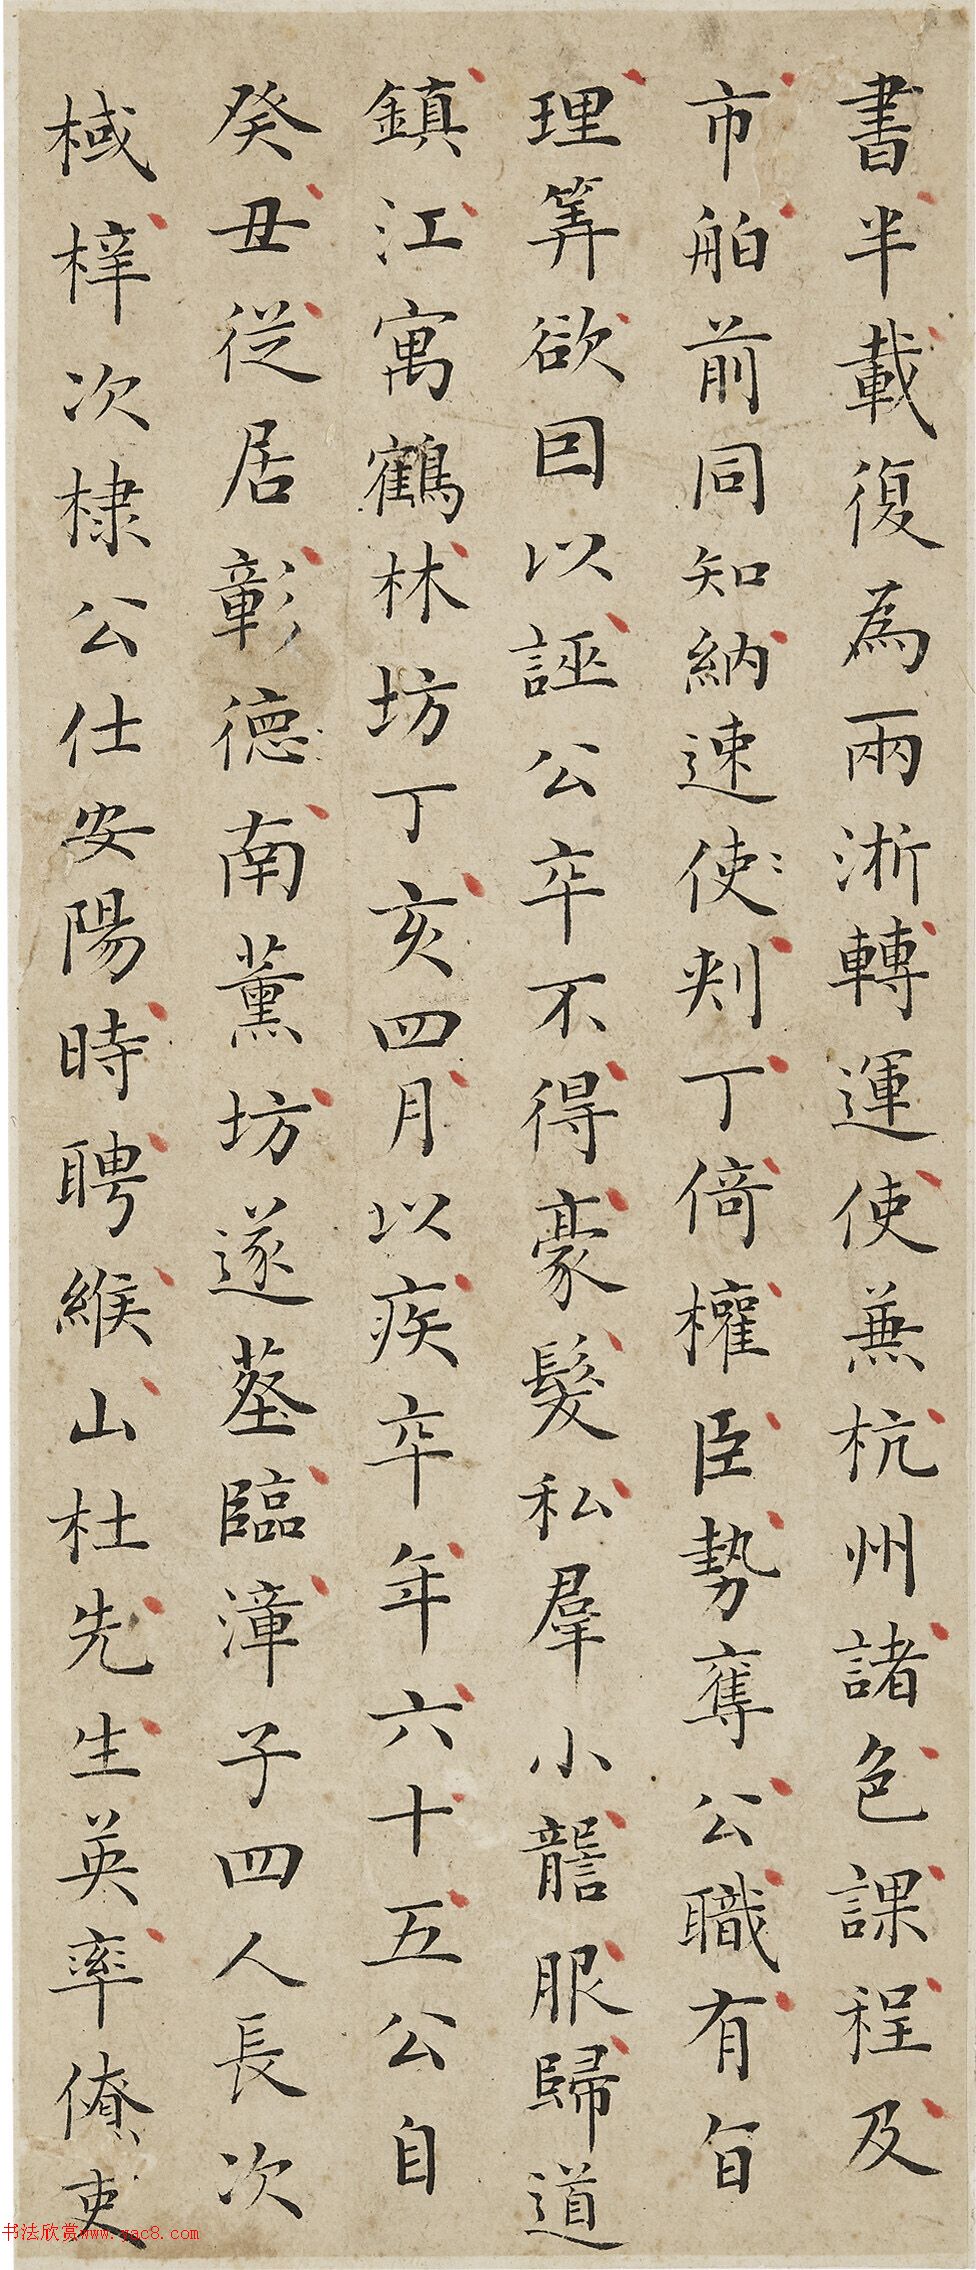 書半載復為兩淛轉運使兼杭州諸色課程及
市舶前同知納速使剌丁倚權臣勢奪公職有旨
理筭欲囙以誣公卒不得豪髮私羣小讋服歸道
鎮江寓鶴林坊丁亥四月以疾卒年六十五公自
癸丑從居彰德南薰坊遂塟臨漳子四人長次
棫梓次棣公仕安陽時聘緱山杜先生英率僚吏
书法欣赏www.yac8.com